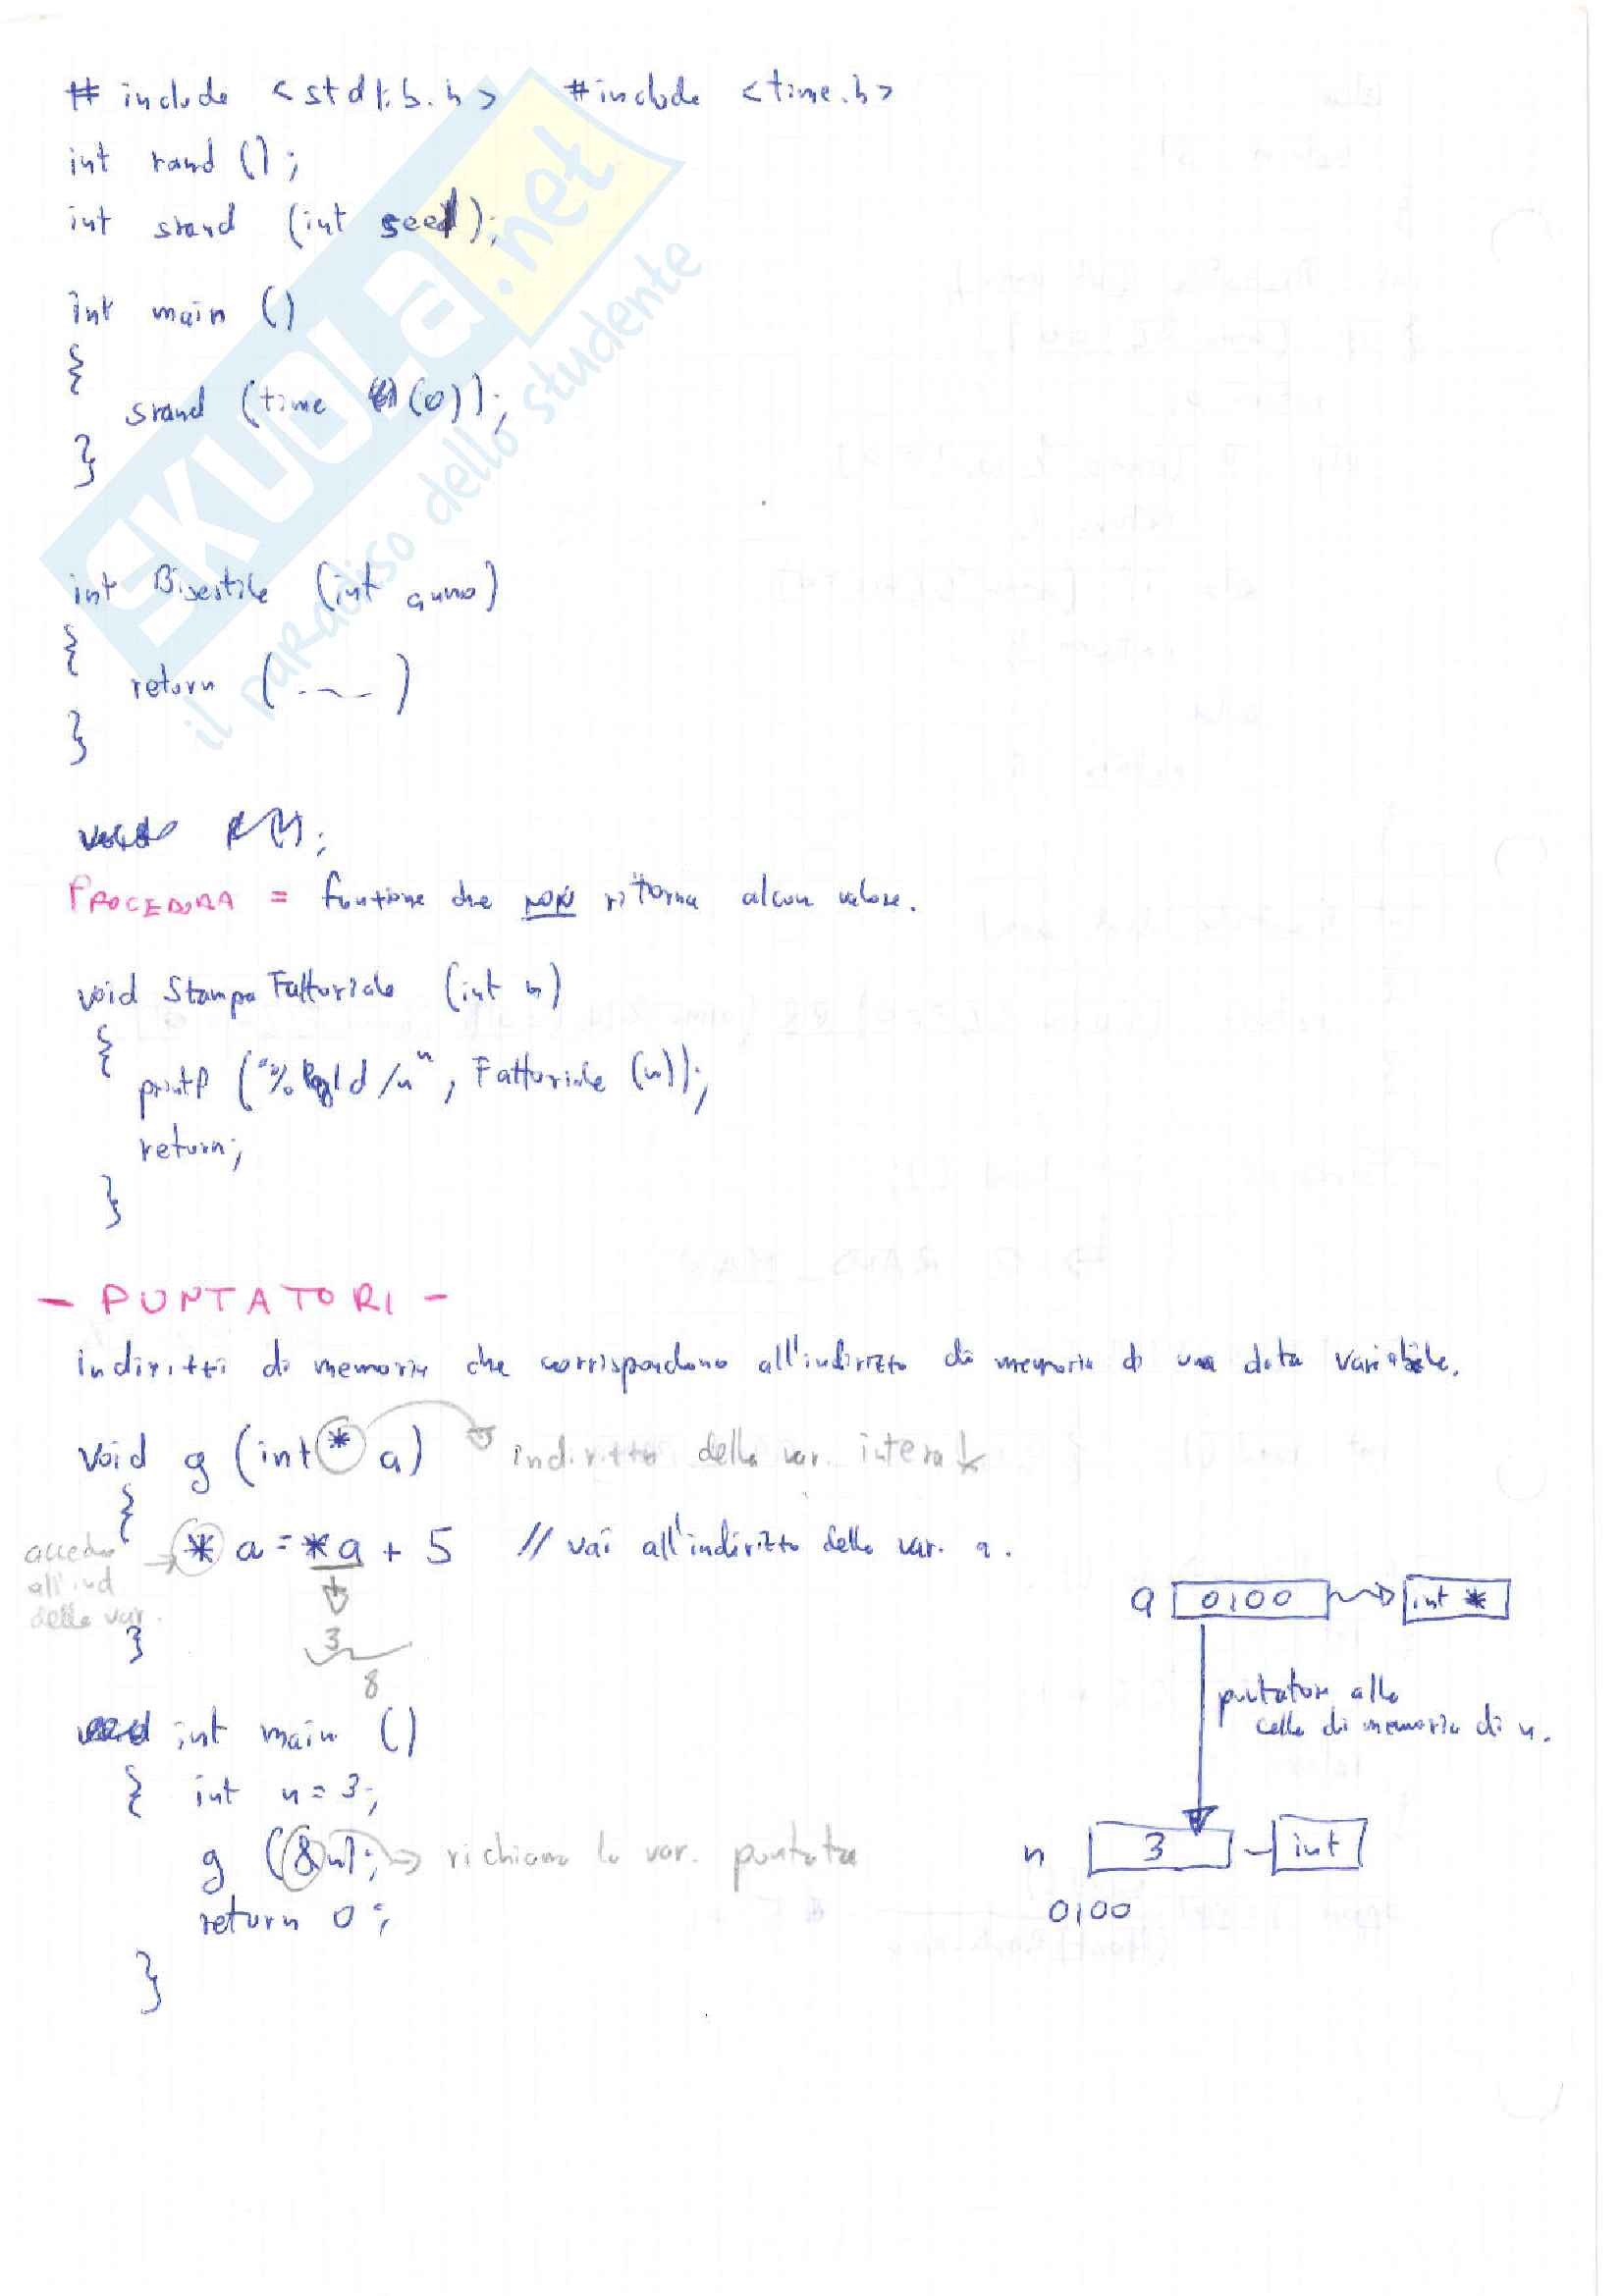 # include <stdlib.h> #include <time.h>
int rand ();
int srand (int seed);
int main ()
{
srand (time (0));
}
int Bisestile (int anno)
{
return (.....)
}
PROCEDURA = funzione che NON ritorna alcun valore.
void StampaFattoriale (int n)
{
printf ("%ld /n", Fattoriale (n));
return;
}
- PUNTATORI -
indirizzi di memoria che corrispondono all'indirizzo di memoria di una data variabile.
void g (int * a) indirizzo della var. intera
{
* a = *a + 5 // vai all'indirizzo della var. a.
accedo all'ind della var.
3
8
}
int main ()
{ int n = 3;
g (&n); richiamo la var. puntata
return 0;
}
a 0100 int *
puntatore alla
cella di memoria di n.
n 3 int
0100
SKUOLA.net
il paradiso dello studente